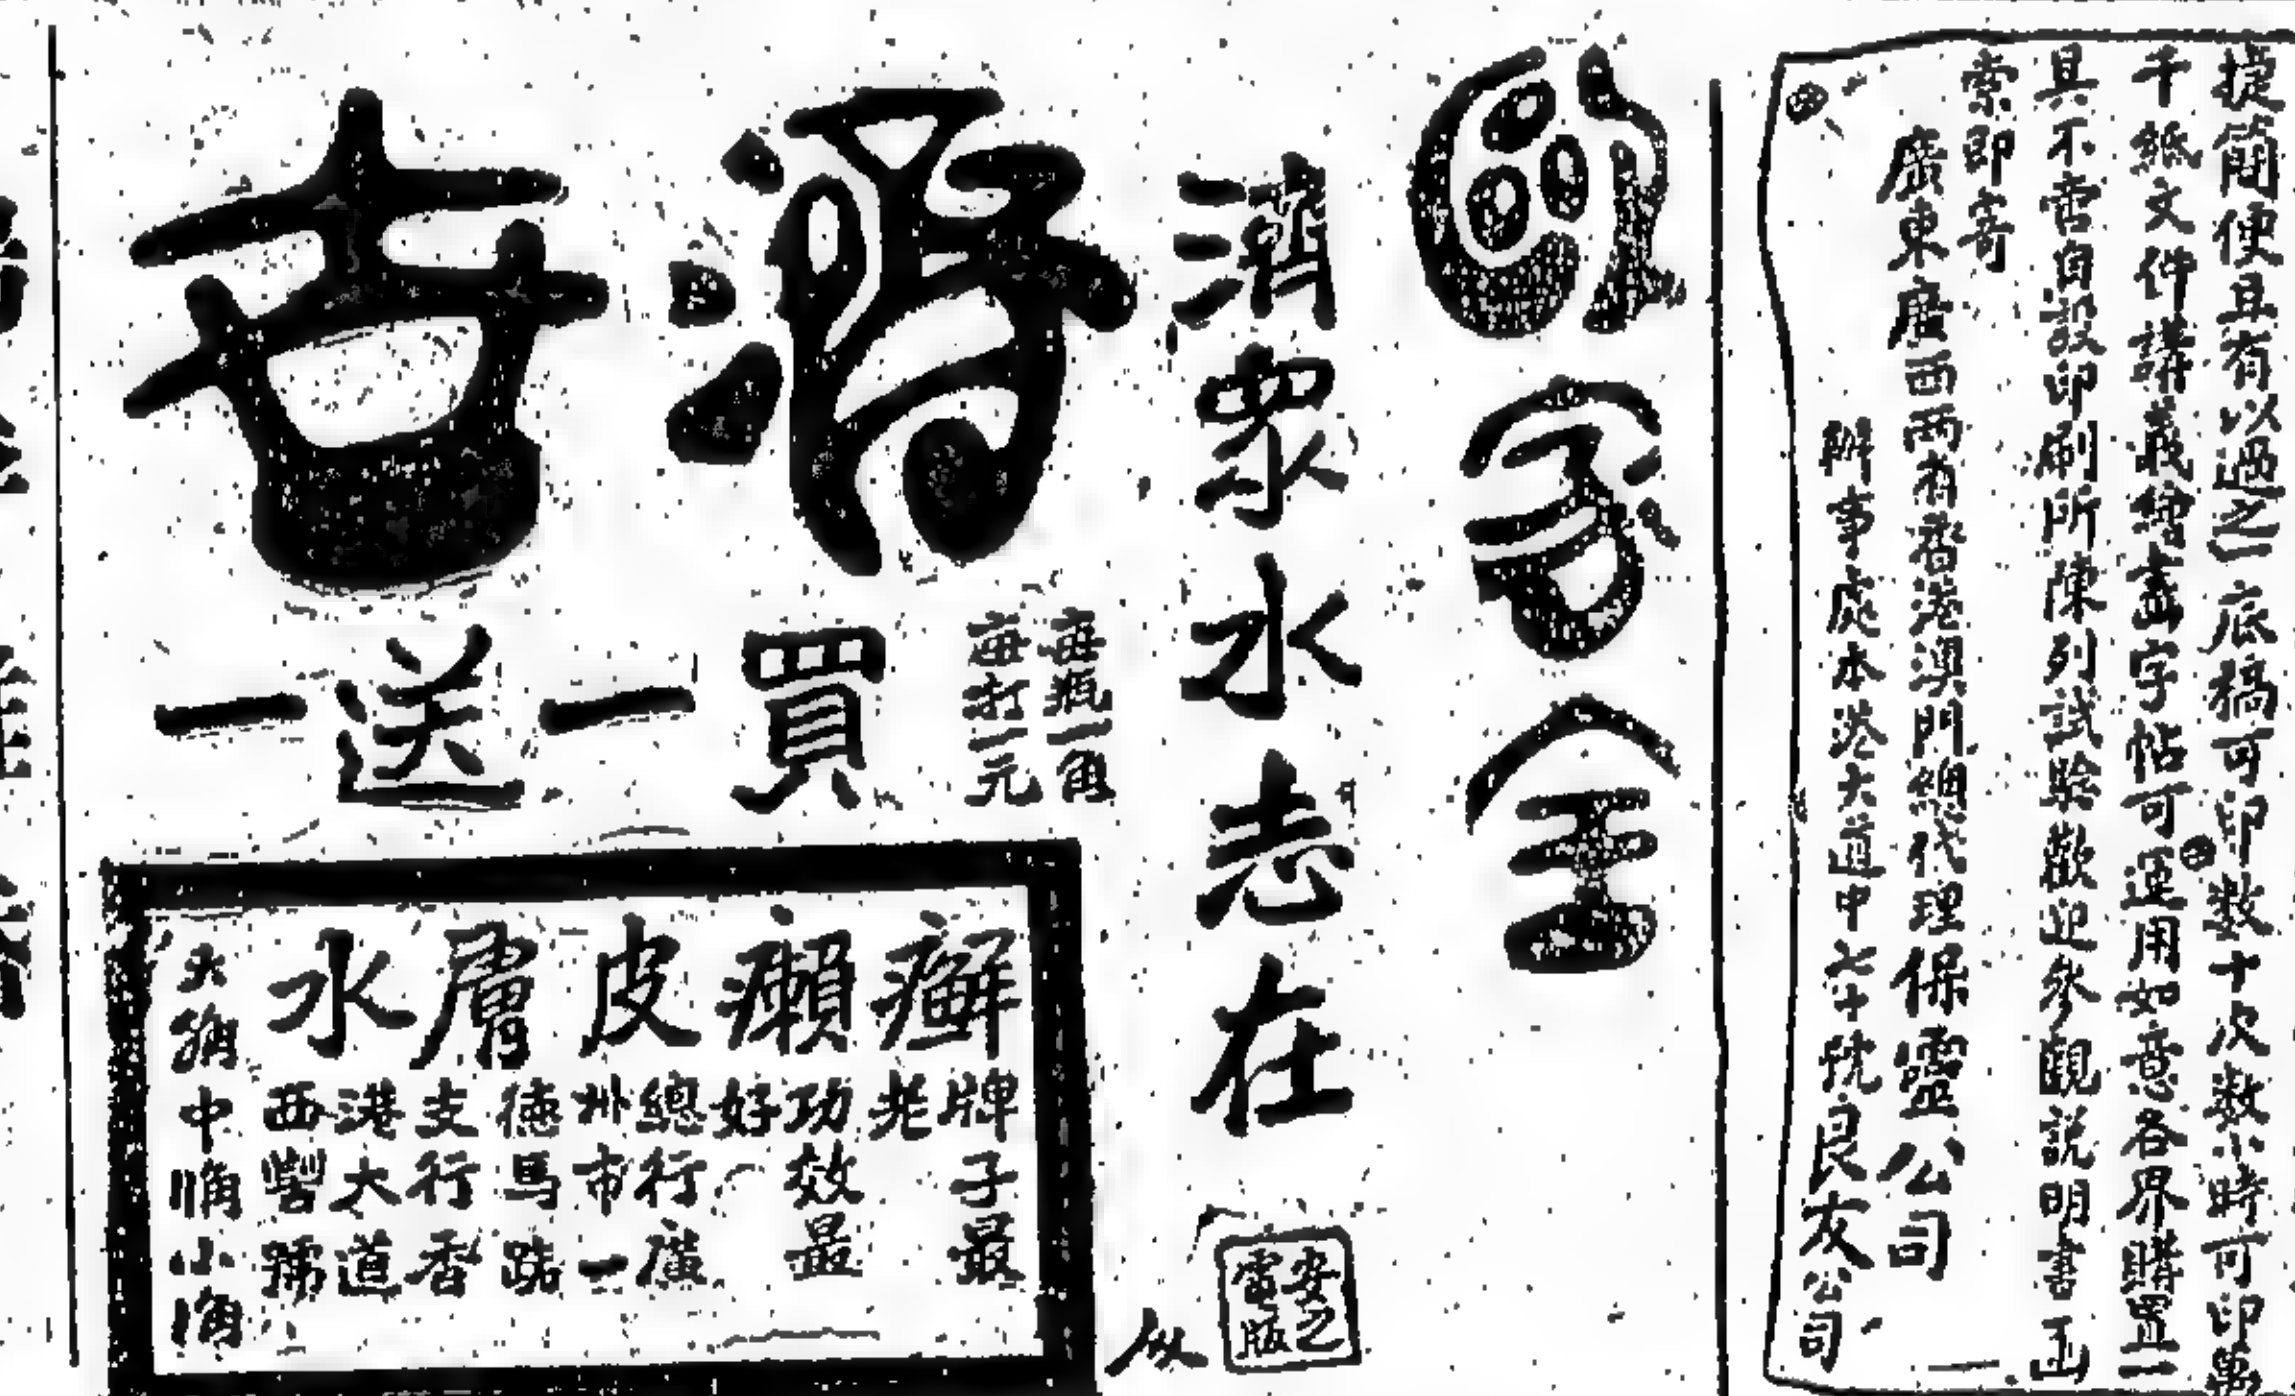 捷簡便且有以過之一底稿可印數十次數小時可印萬
千紙文件講義繪畫字帖可運用如意各界購置一
具不啻自設印刷所陳列試驗歡迎參觀説明書函
索即寄
廣東廣西兩省香港澳門總代理保靈公司
辦事處本港大道中七十號良友公司
家全
濟眾水志在
濟世
每瓶一角
每打一元
買一送一
癬癩皮膚水
牌子最
老
功效最
好
總行廣
州市一
德馬路
支行香
港大道
西 號
大 中 小
安之
電版